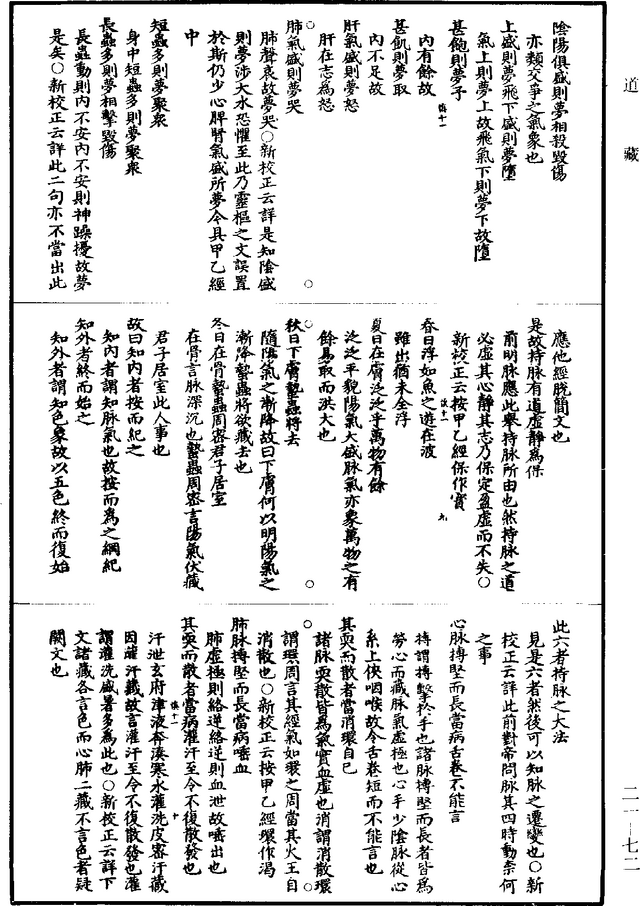 道藏
陰陽俱盛則夢相殺毀傷
亦類交爭之氣象也
上盛則夢飛下盛則夢墮
氣上則夢上故飛氣下則夢下故墮
甚飽則夢予
內有餘故
甚飢則夢取
內不足故
肝氣盛則夢怒
肝在志為怒
肺氣盛則夢哭
肺聲哀故夢哭○新校正云詳是知陰盛
則夢涉大水恐懼至此乃靈樞之文誤置
於斯仍少心脾腎氣盛所夢今具甲乙經
中
短蟲多則夢聚衆
身中短蟲多則夢聚衆
長蟲多則夢相擊毀傷
長蟲動則內不安內不安則神躁擾故夢
是矣○新校正云詳此二句亦不當出此
應他經脫簡文也
是故持脉有道虛靜爲保
前明脉應此舉持脉所由也然持脉之道
必虛其心靜其志乃保定盈虛而不失○
新校正云按甲乙經保作寳
春日浮如魚之遊在波
雖出猶未全浮
夏日在膚泛泛乎萬物有餘
泛泛平貌陽氣大盛脉氣亦象萬物之有
餘易取而洪大也
秋日下膚蟄蟲將去
隨陽氣之漸降故曰下膚何以明陽氣之
漸降蟄蟲將欲藏去也
冬日在骨蟄蟲周密君子居室
在骨言脉深沉也蟄蟲周密言陽氣伏藏
君子居室此人事也
故曰知內者按而紀之
知內者謂知脉氣也故按而爲之綱紀
知外者終而始之
知外者謂知色象故以五色終而復始
此六者持脉之大法
見是六者然後可以知脉之遷變也○新
校正云詳此前對帝問脉其四時動奈何
之事
心脉搏堅而長當病舌卷不能言
搏謂搏擊於手也諸脉搏堅而長者皆爲
勞心而藏脉氣虛極也心手少陰脉從心
系上俠咽喉故令舌卷短而不能言也
其耎而散者當消環自已
諸脉耎散皆爲氣實血虛也消謂消散環
謂環周言其經氣如環之周當其火王自
消散也○新校正云按甲乙經環作渴
肺脉搏堅而長當病唾血
肺虛極則絡逆絡逆則血泄故唾出也
其耎而散者當病灌汗至令不復散發也
汗泄玄府津液奔湊寒水灌洗皮密汗藏
因灌汗藏故言灌汗至令不復散發也灌
謂灌洗盛暑多為此也○新校正云詳下
文諸藏各言色而心肺二藏不言色者疑
闕文也
二一—七二